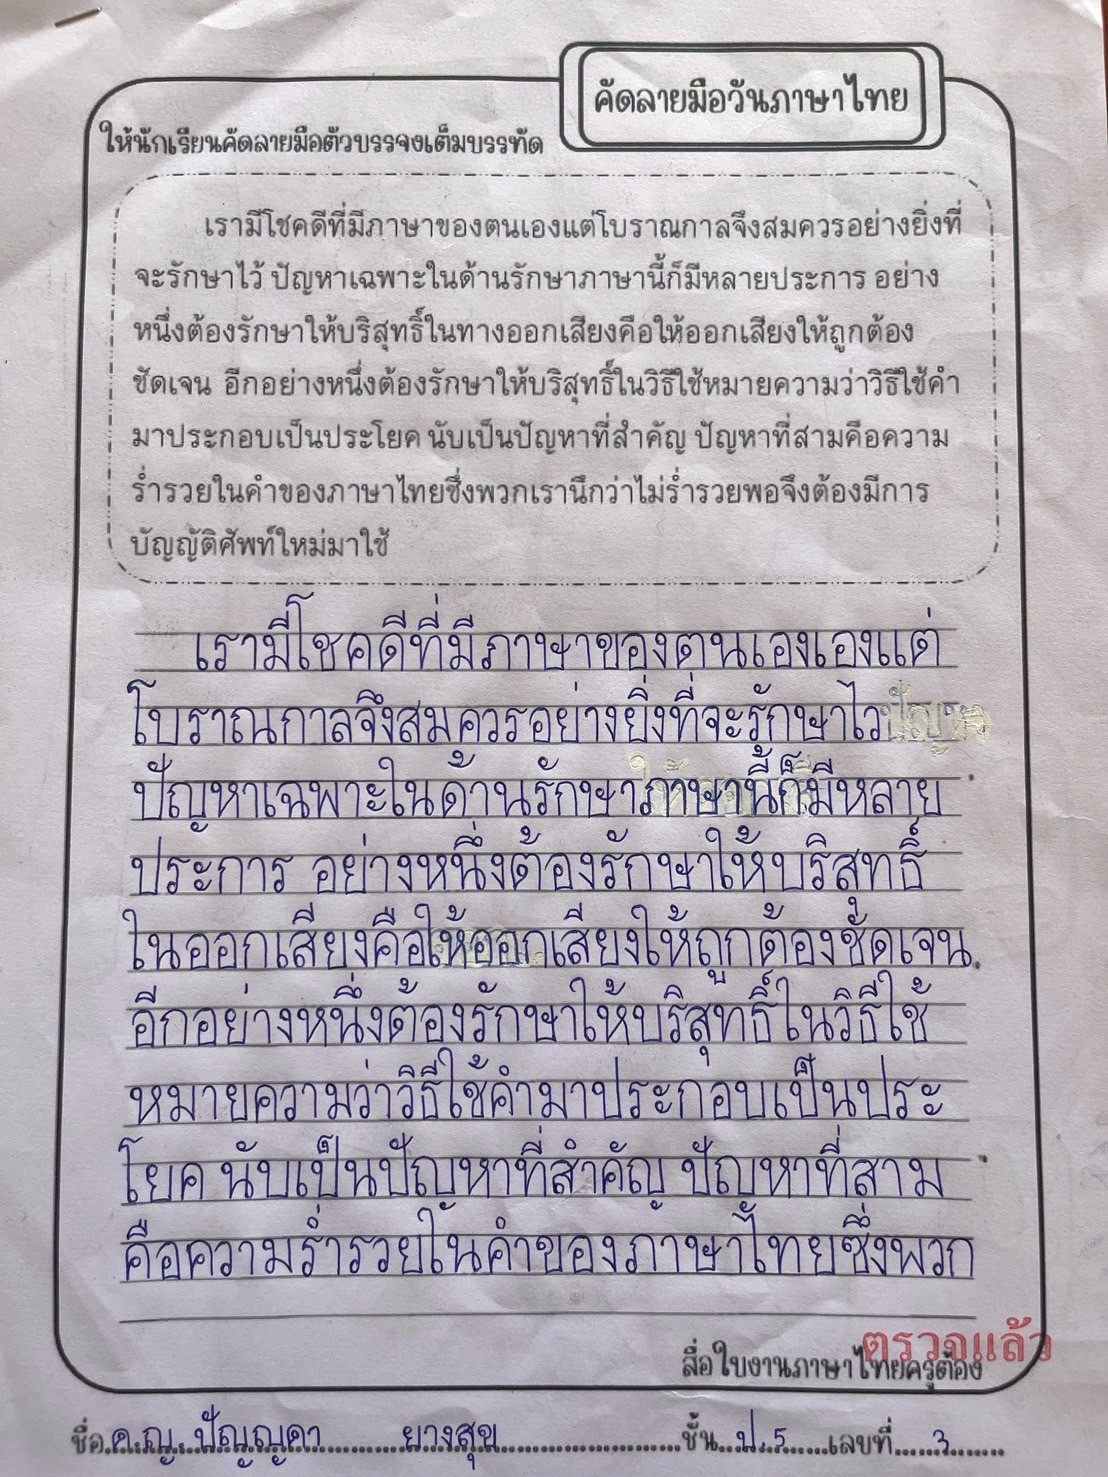 คัดลายมือวันภาษาไทย
ให้นักเรียนคัดลายมือตัวบรรจงเต็มบรรทัด
เรามีโชคดีที่มีภาษาของตนเองแต่โบราณกาลจึงสมควรอย่างยิ่งที่
จะรักษาไว้ ปัญหาเฉพาะในด้านรักษาภาษานี้ก็มีหลายประการ อย่าง
หนึ่งต้องรักษาให้บริสุทธิ์ในทางออกเสียงคือให้ออกเสียงให้ถูกต้อง
ชัดเจน อีกอย่างหนึ่งต้องรักษาให้บริสุทธิ์ในวิธีใช้หมายความว่าวิธีใช้คำ
มาประกอบเป็นประโยค นับเป็นปัญหาที่สำคัญ ปัญหาที่สามคือความ
ร่ำรวยในคำของภาษาไทยซึ่งพวกเรานึกว่าไม่ร่ำรวยพอจึงต้องมีการ
บัญญัติศัพท์ใหม่มาใช้
เรามีโชคดีที่มีภาษาของตนเองเองแต่
โบราณกาลจึงสมควรอย่างยิ่งที่จะรักษาไว
ปัญหาเฉพาะในด้านรักษาภาษานี้ก็มีหลาย
ประการ อย่างหนึ่งต้องรักษาให้บริสุทธิ์
ในออกเสียงคือให้ออกเสียงให้ถูกต้องชัดเจน
อีกอย่างหนึ่งต้องรักษาให้บริสุทธิ์ในวิธีใช้
หมายความว่าวิธีใช้คำมาประกอบเป็นประ
โยค นับเป็นปัญหาที่สำคัญ ปัญหาที่สาม
คือความร่ำรวยในคำของภาษาไทยซึ่งพวก
ตรวจแล้ว
สื่อใบงานภาษาไทยครูต้อง
ชื่อ ด.ญ. ปัญญดา ยางสุข ชั้น ป.5 เลขที่ 3